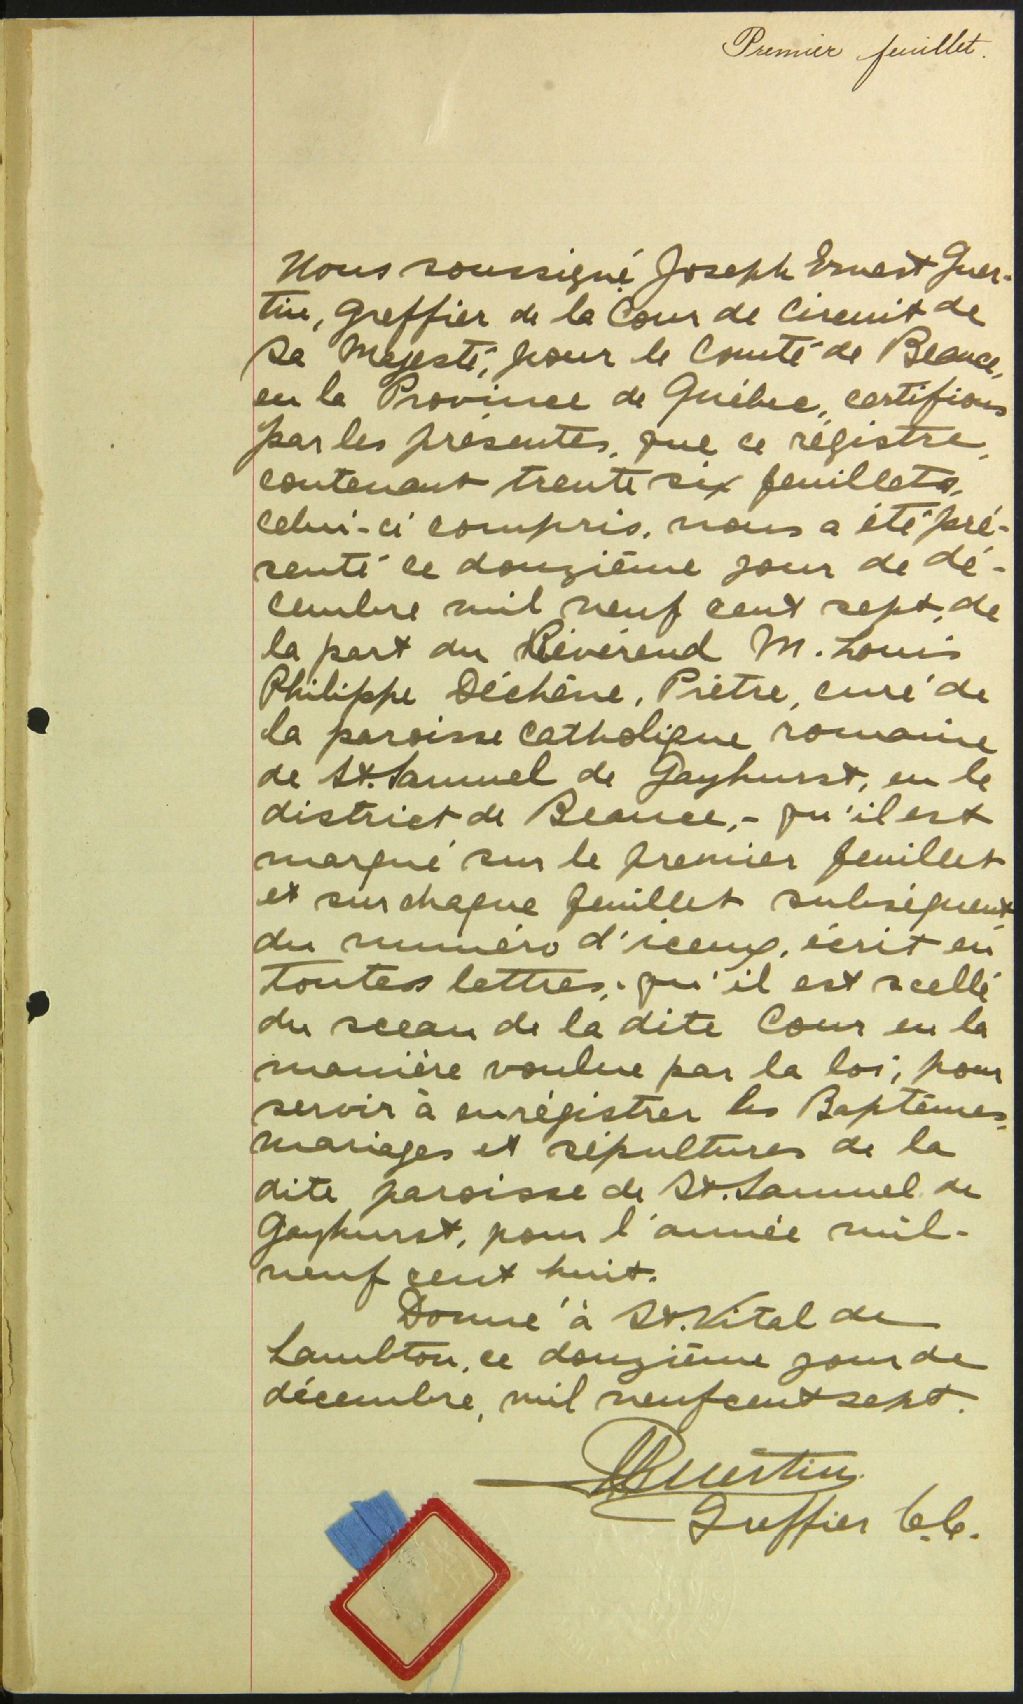 Premier feuillet.
Nous soussigné, Joseph Ernest Guer-
tin, greffier de la Cour de Circuit de
Sa Majesté, pour le Comté de Beauce,
en la Province de Québec, certifions
par les présentes, que ce régistre,
contenant trente six feuillets,
celui-ci compris, nous a été pré-
senté ce douzième jour de dé-
cembre mil neuf cent sept, de
la part du Révérend M. Louis
Philippe Déchêne, Prêtre, curé de
la paroisse Catholique romaine
de St. Samuel de Gayhurst, en le
district de Beauce,- qu'il est
marqué sur le premier feuillet
et sur chaque feuillet subséquent
du numéro d'iceux, écrit en
toutes lettres, qu'il est scellé
du sceau de la dite Cour en la
manière voulue par la loi, pour
servir à enrégistrer les Baptêmes,
mariages et sépultures de la
dite paroisse de St. Samuel de
Gayhurst, pour l'année mil-
neuf cent huit.
Donné à St. Vital de
Lambton, ce douzième jour de
décembre, mil neuf cent sept.
Guertin
Greffier C.C.